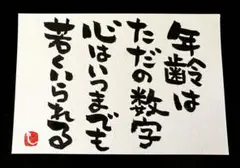 年齢は
ただの数字
心はいつまでも
若くいられる